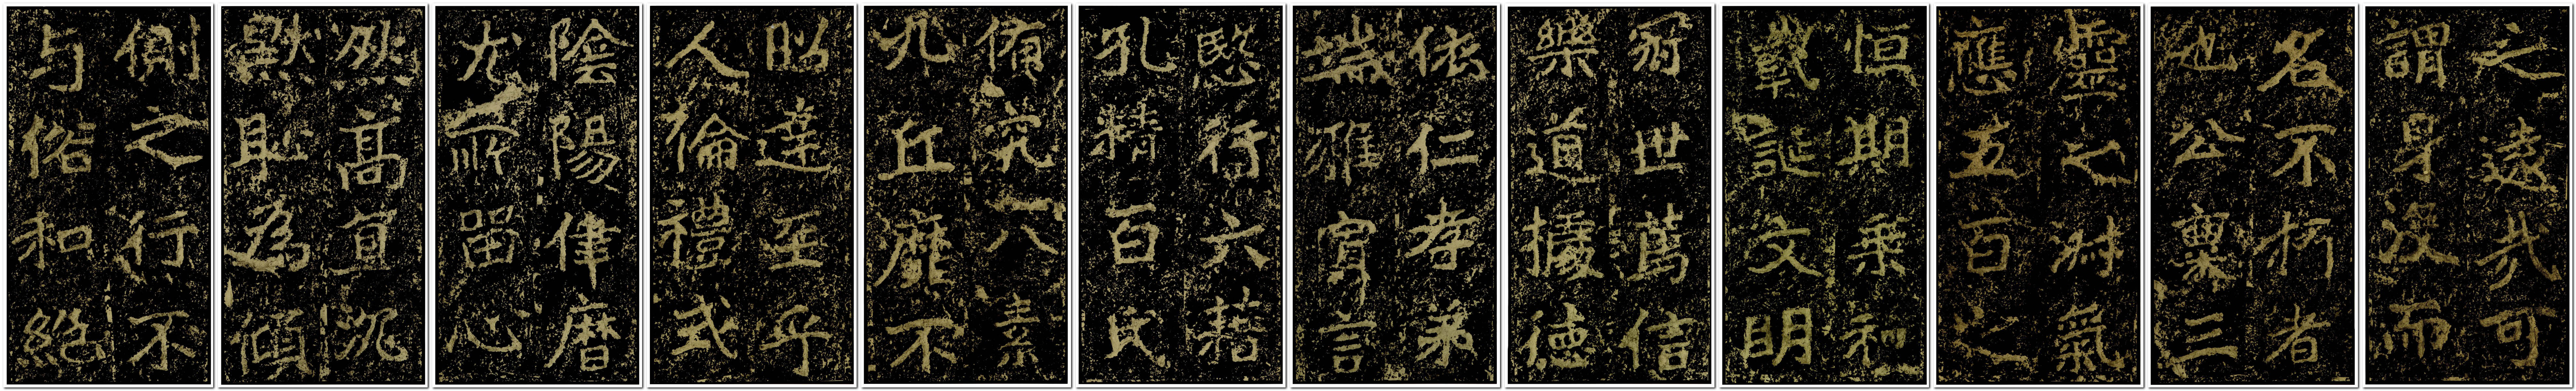 之遠哉可
謂身沒而
名不朽者
也公稟三
靈之淑氣
應五百之
恒期乘和
載誕文明
冠世篤信
樂道據德
依仁孝弟
端雅寡言
愍行六籍
孔精百氏
備究八素
九丘靡不
昭達至乎
人倫禮式
陰陽律曆
尤所留心
然高直沉
默恥為傾
側之行不
与俗和絕